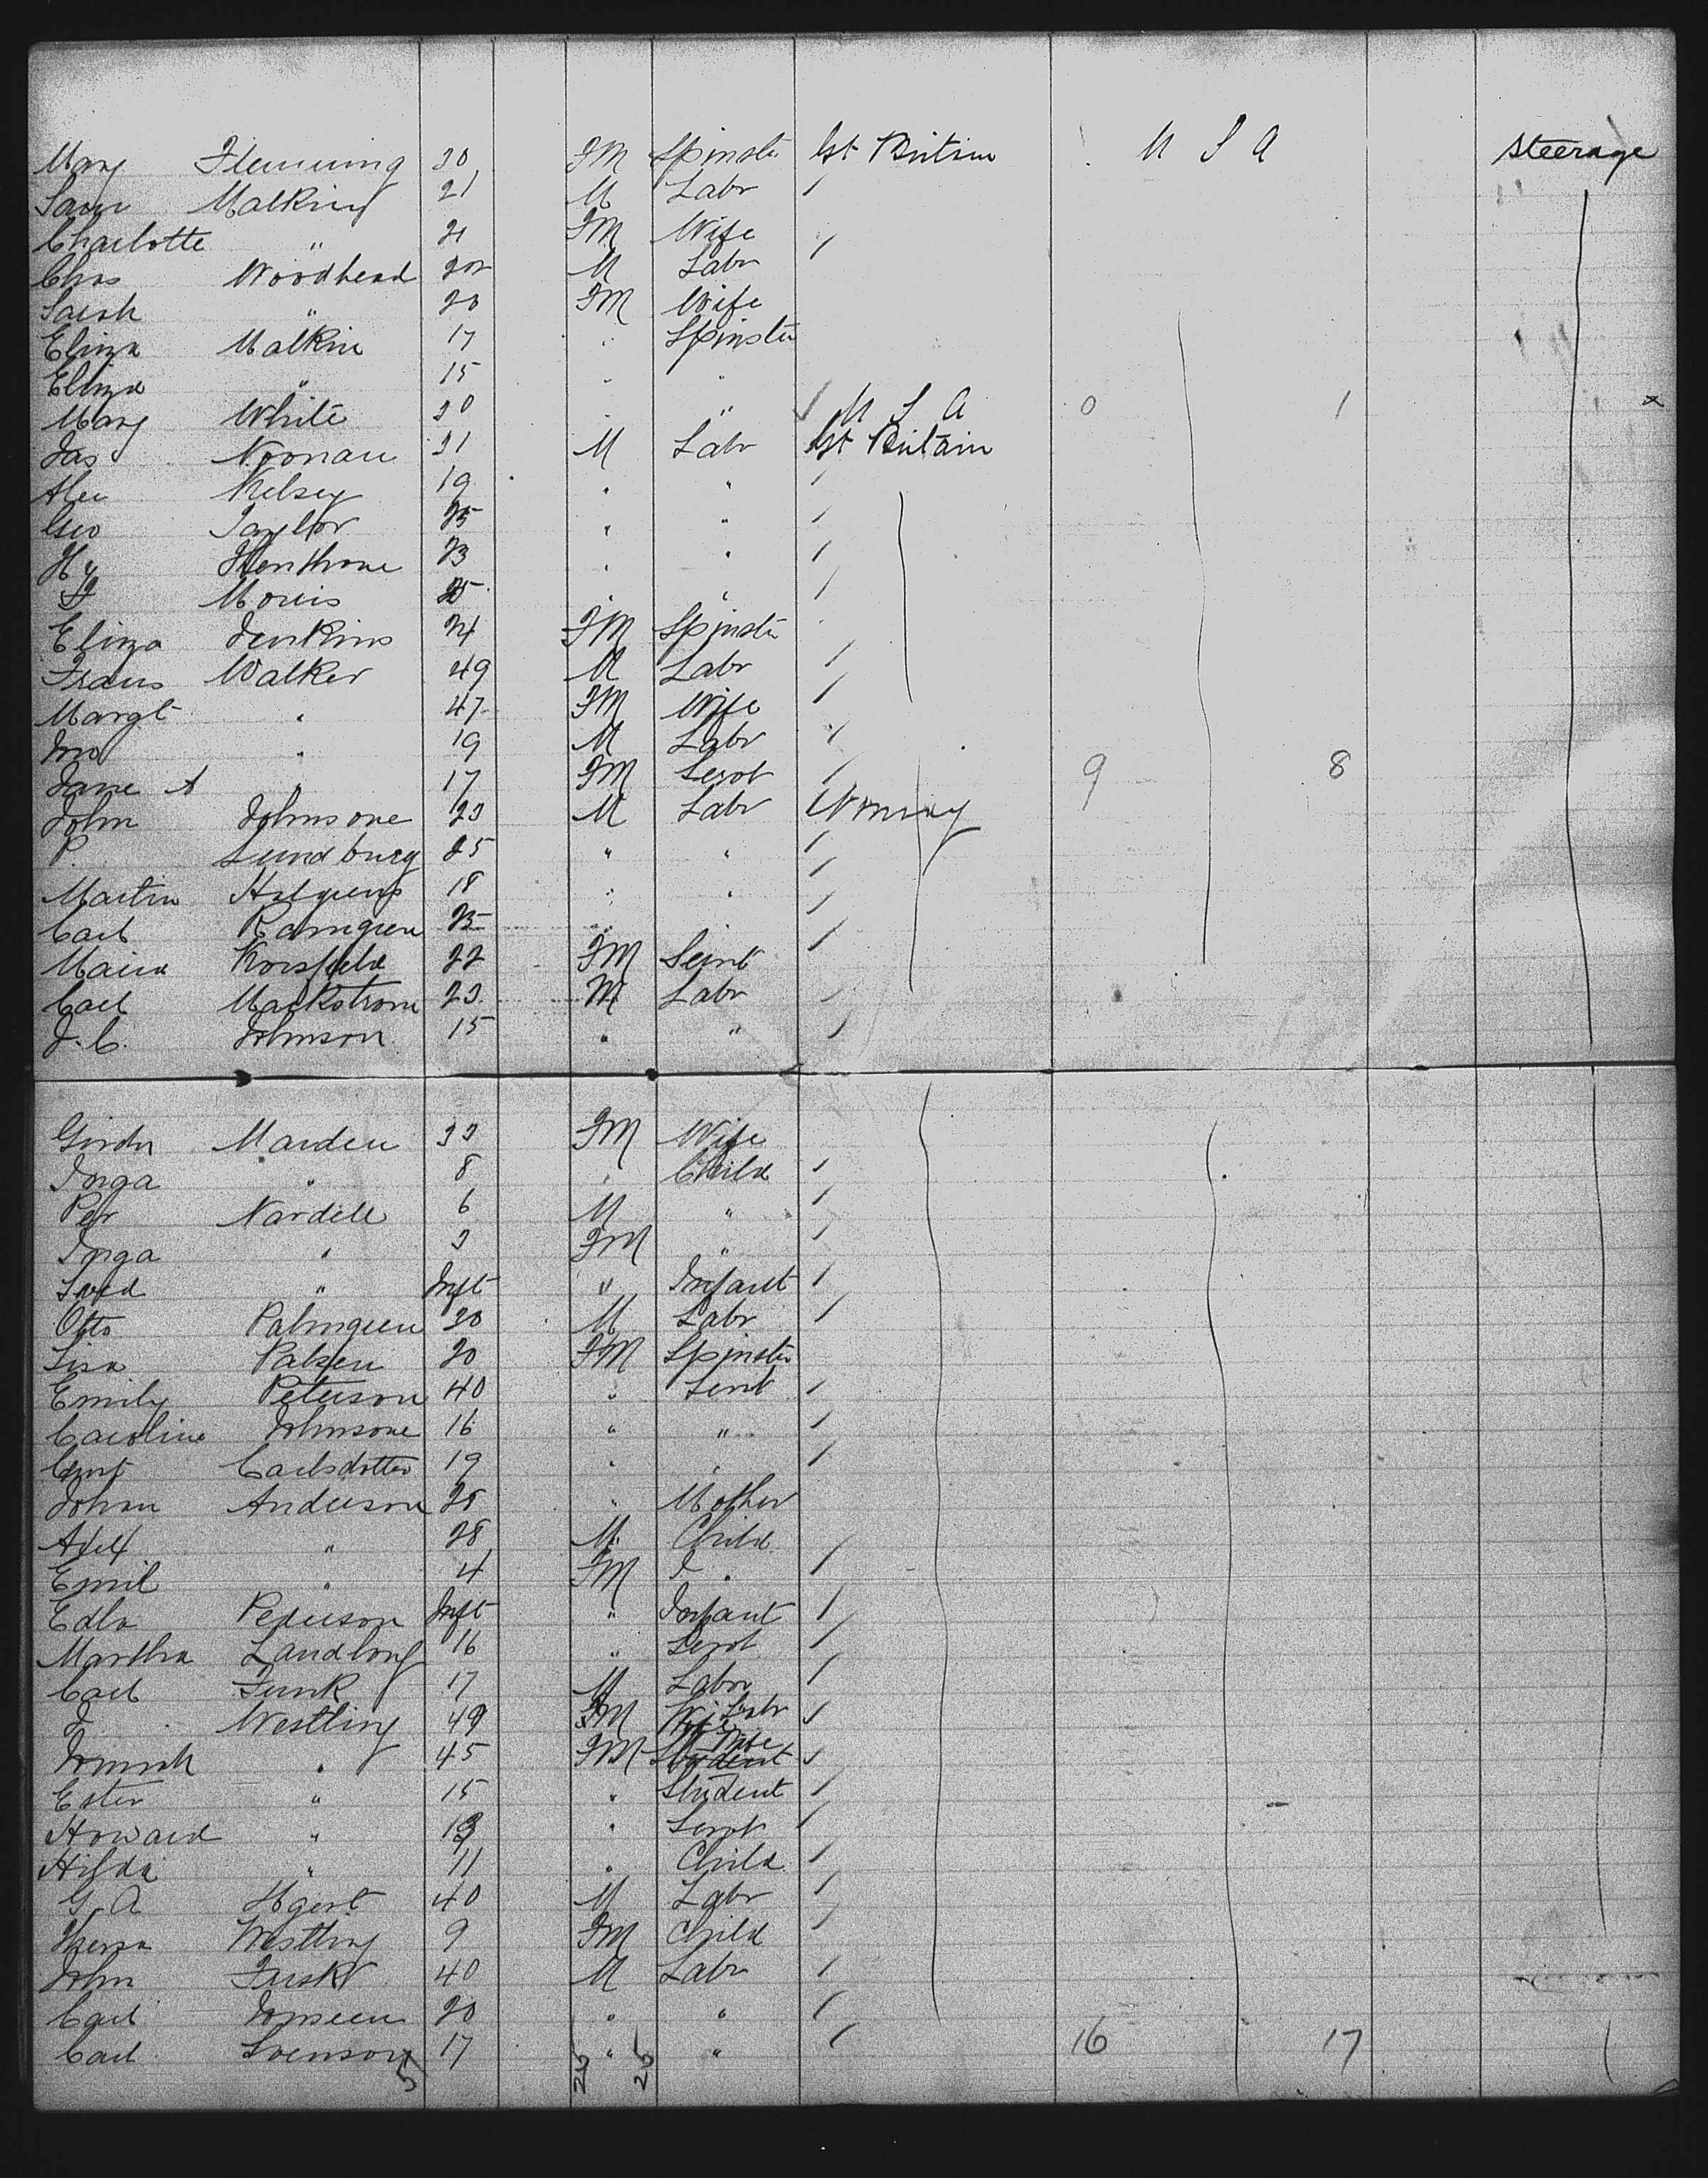 Mary Flemming 20 FM Spinster Gt Britain U S A Steerage
Saml Malking 21 M Labr /
Charlotte " 21 FM Wife /
Chas Woodhead 22 M Labr
Sarah " 20 FM Wife
Eliza Malkin 17 " Spinster
Eliza " 15 " "
Mary White 20 " " / U S A 0 1 x
Jas Noonan 21 M Labr Gt Britain
Alex Kelsey 19 " " /
Geo Taylor 25 " " /
Hy Henthorne 23 " " /
Morris 25 " " /
Eliza Jenkins 24 FM Spinster
Walker 49 M Labr /
Margt " 47 FM Wife /
Jno " 19 M Labr /
Jane A " 17 FM Servt / 9 8
John Johnsone 23 M Labr Norway
P. Lundburg 25 " " /
Martin 18 " " /
Carl Ramgren 25 " /
Maria Korsfeld 22 FM Servt /
Carl Markstrom 23 M Labr /
J. C. Johnson 15 " " /
Marden 33 FM Wife
Inga " 8 " Child /
Per Nardell 6 M " /
Inga " 3 FM " /
" Inft " Infant /
Otto Palmgren 20 M Labr /
Lisa Palsen 20 FM Spinster
Emily Peterson 40 " Servt /
Caroline Johnsone 16 " " /
Carlsdotter 19 " " /
Johan Anderson 28 " Mother
Axel " 28 M Child
Emil " 4 FM " /
Edla Pederson Inft " Infant /
Martha Landbong 16 " Servt /
Carl Funk 17 M Labor /
J. Westling 49 FM Wife Labr /
" 45 FM Student Wife /
Ester " 15 " Student /
Howard " 13 " Servt /
Hilda " 11 " Child /
G. A Hgert 40 M Labr /
Westling 9 FM Child /
John Fusk 40 M Labr /
Carl 20 " " /
Carl Svenson 17 " " / 16 17
5 26 26